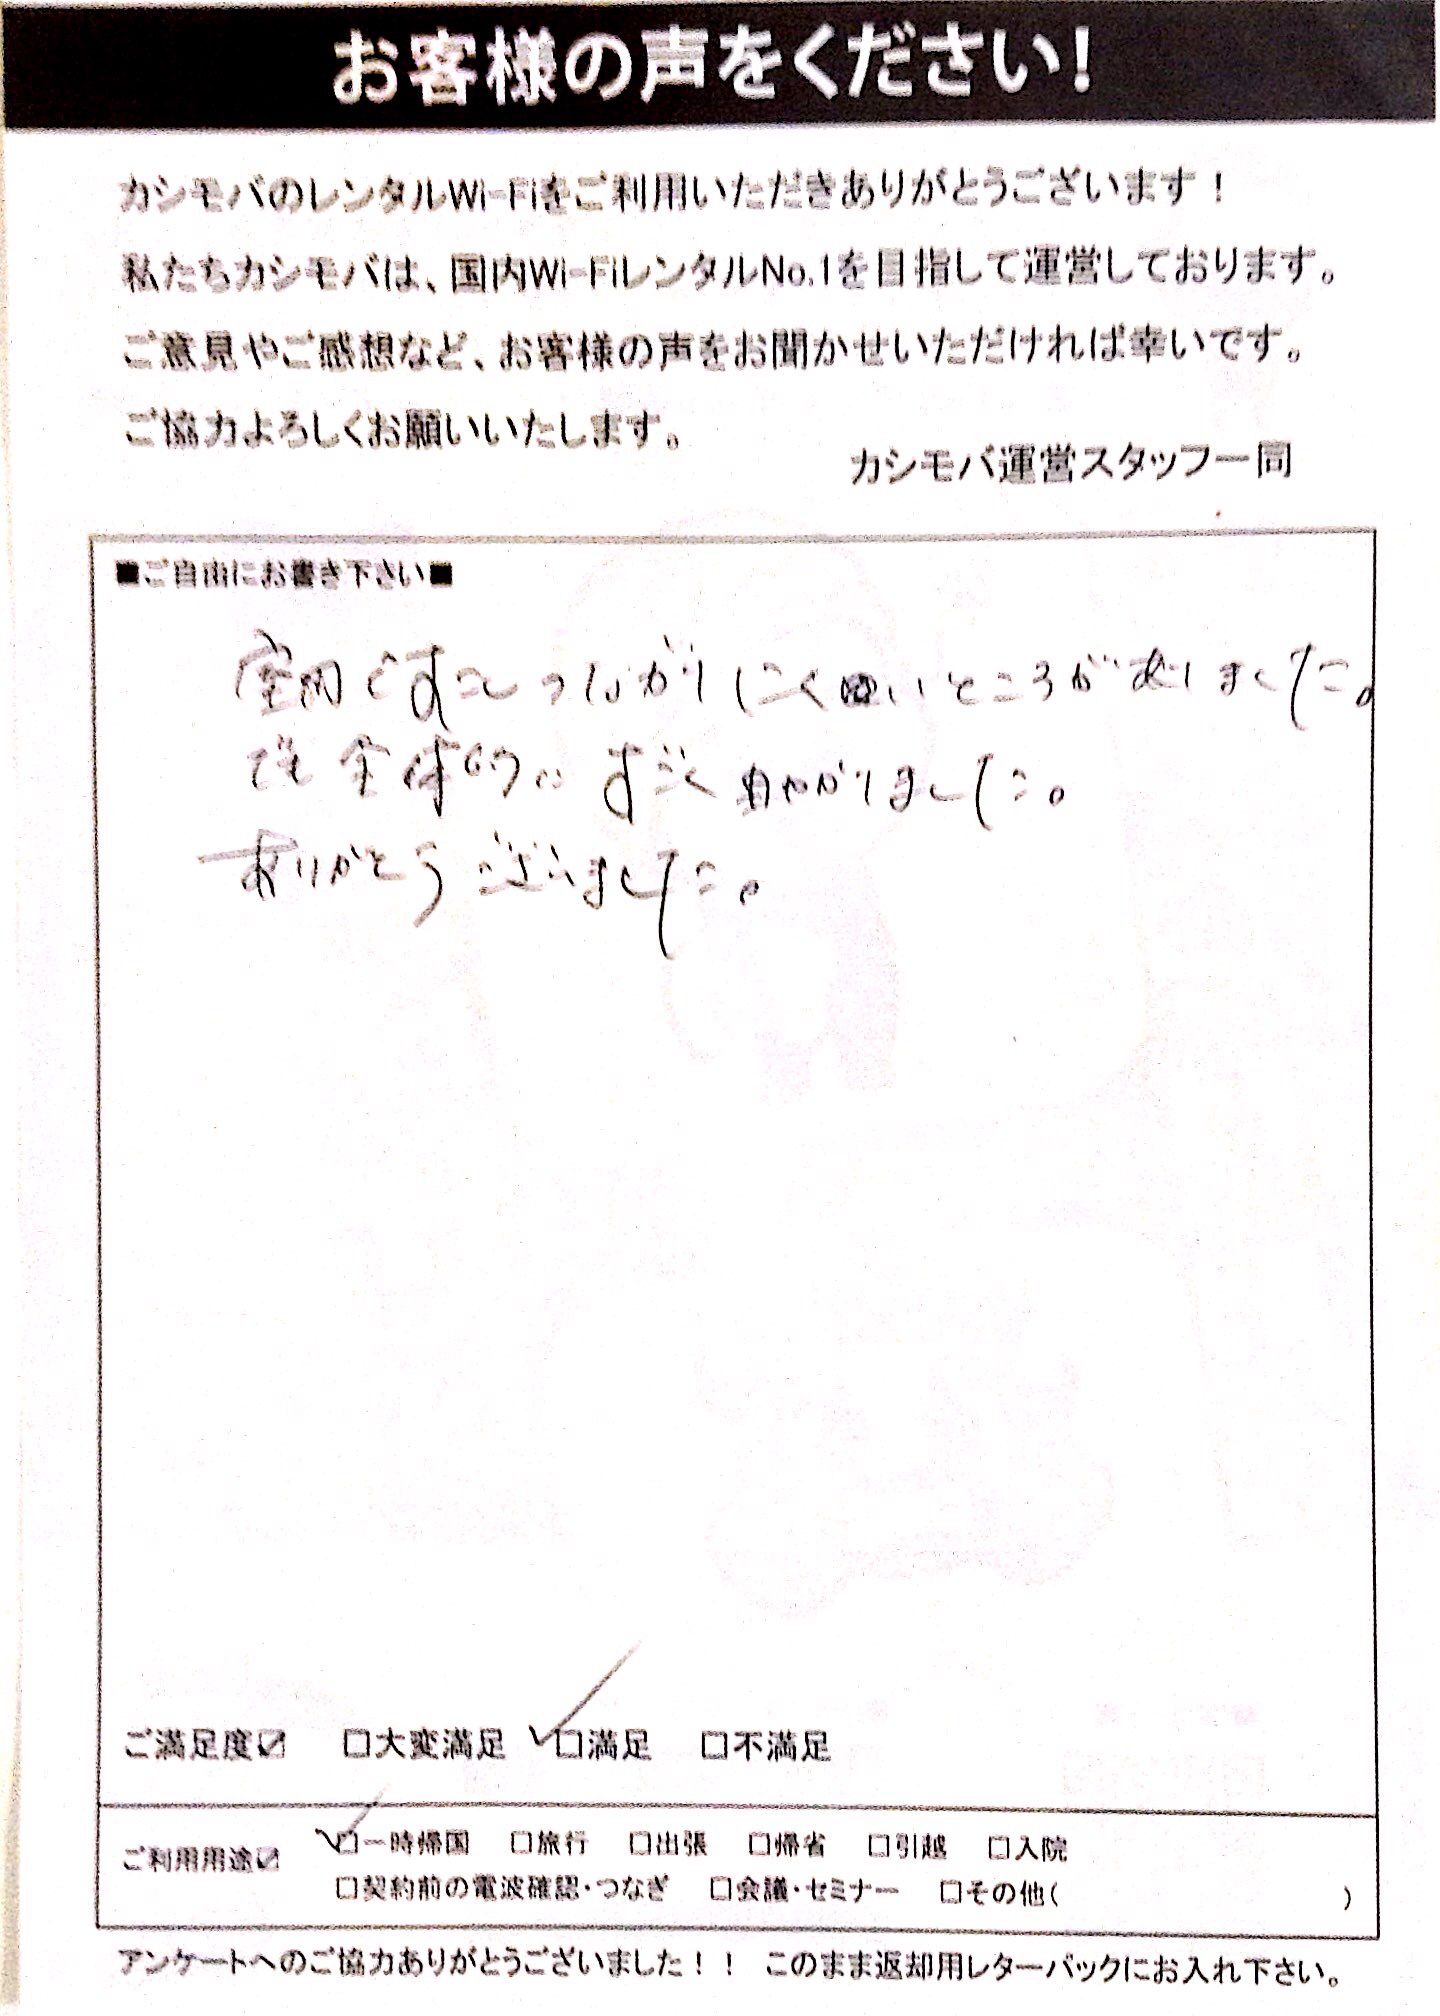 お客様の声をください!
カシモバのレンタルWi-Fiをご利用いただきありがとうございます!
私たちカシモバは、国内Wi-FiレンタルNo.1を目指して運営しております。
ご意見やご感想など、お客様の声をお聞かせいただければ幸いです。
ご協力よろしくお願いいたします。
カシモバ運営スタッフ一同
■ご自由にお書き下さい■
つながりにくいところがありました。
全体的に すごく 助かりました。
ありがとうございました。
ご満足度☑ □大変満足 ☑満足 □不満足
ご利用用途☑ ☑一時帰国 □旅行 □出張 □帰省 □引越 □入院
□契約前の電波確認・つなぎ □会議・セミナー □その他( )
アンケートへのご協力ありがとうございました!! このまま返却用レターパックにお入れ下さい。